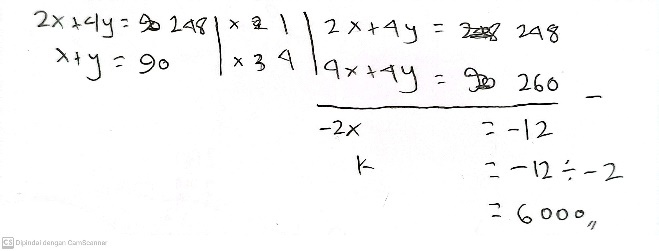 2x+4y = 248 | x 1 | 2x+4y = 248
x+y = 90 | x 4 | 4x+4y = 260 -
-2x = -12
k = -12 ÷ -2
= 6000,,
CS Dipindai dengan CamScanner